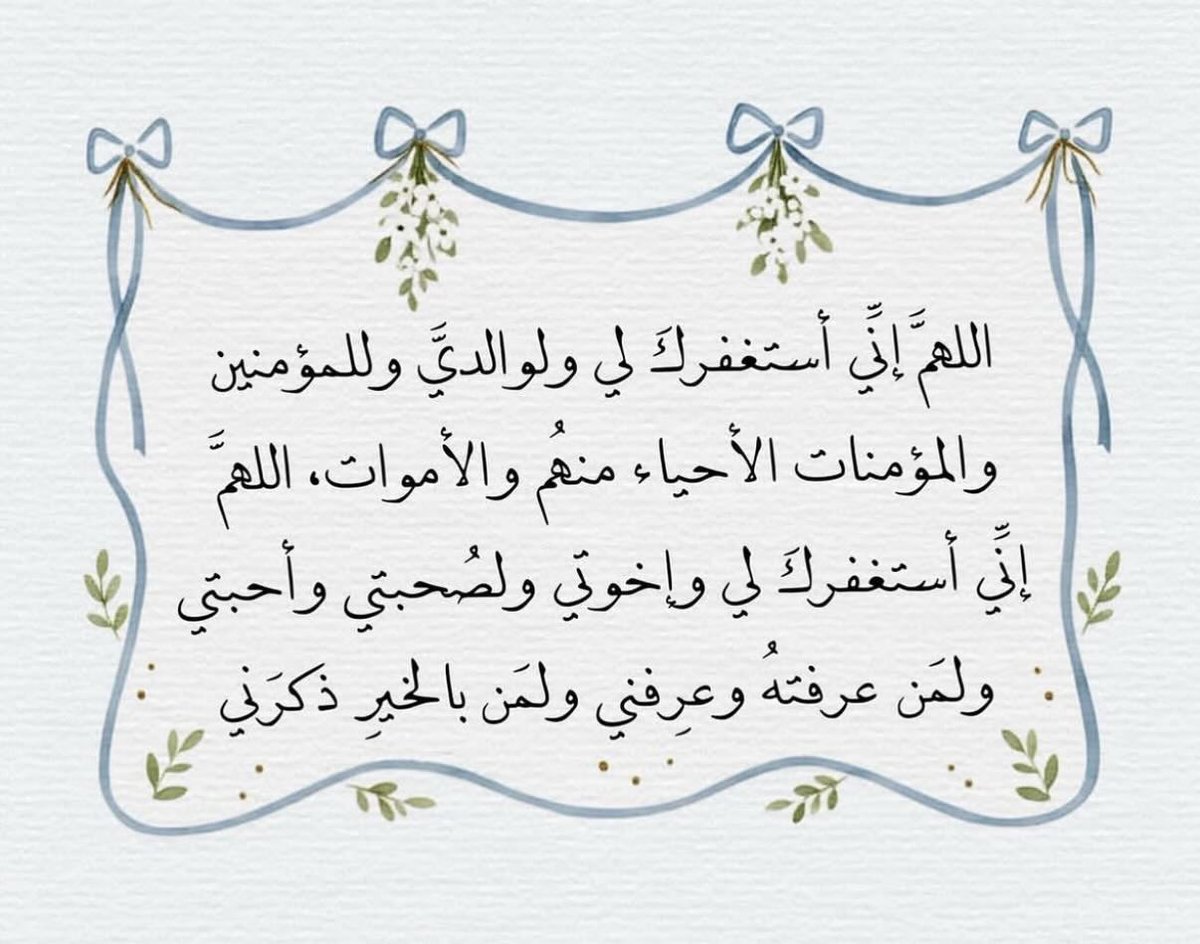 اللهمَّ إنِّي أستغفركَ لي ولوالديَّ وللمؤمنين
والمؤمنات الأحياء منهُم والأموات، اللهمَّ
إنِّي أستغفركَ لي وإخوتي ولصُحبتي وأحبتي
ولمَن عرفتهُ وعرِفني ولمَن بالخيرِ ذكرَني